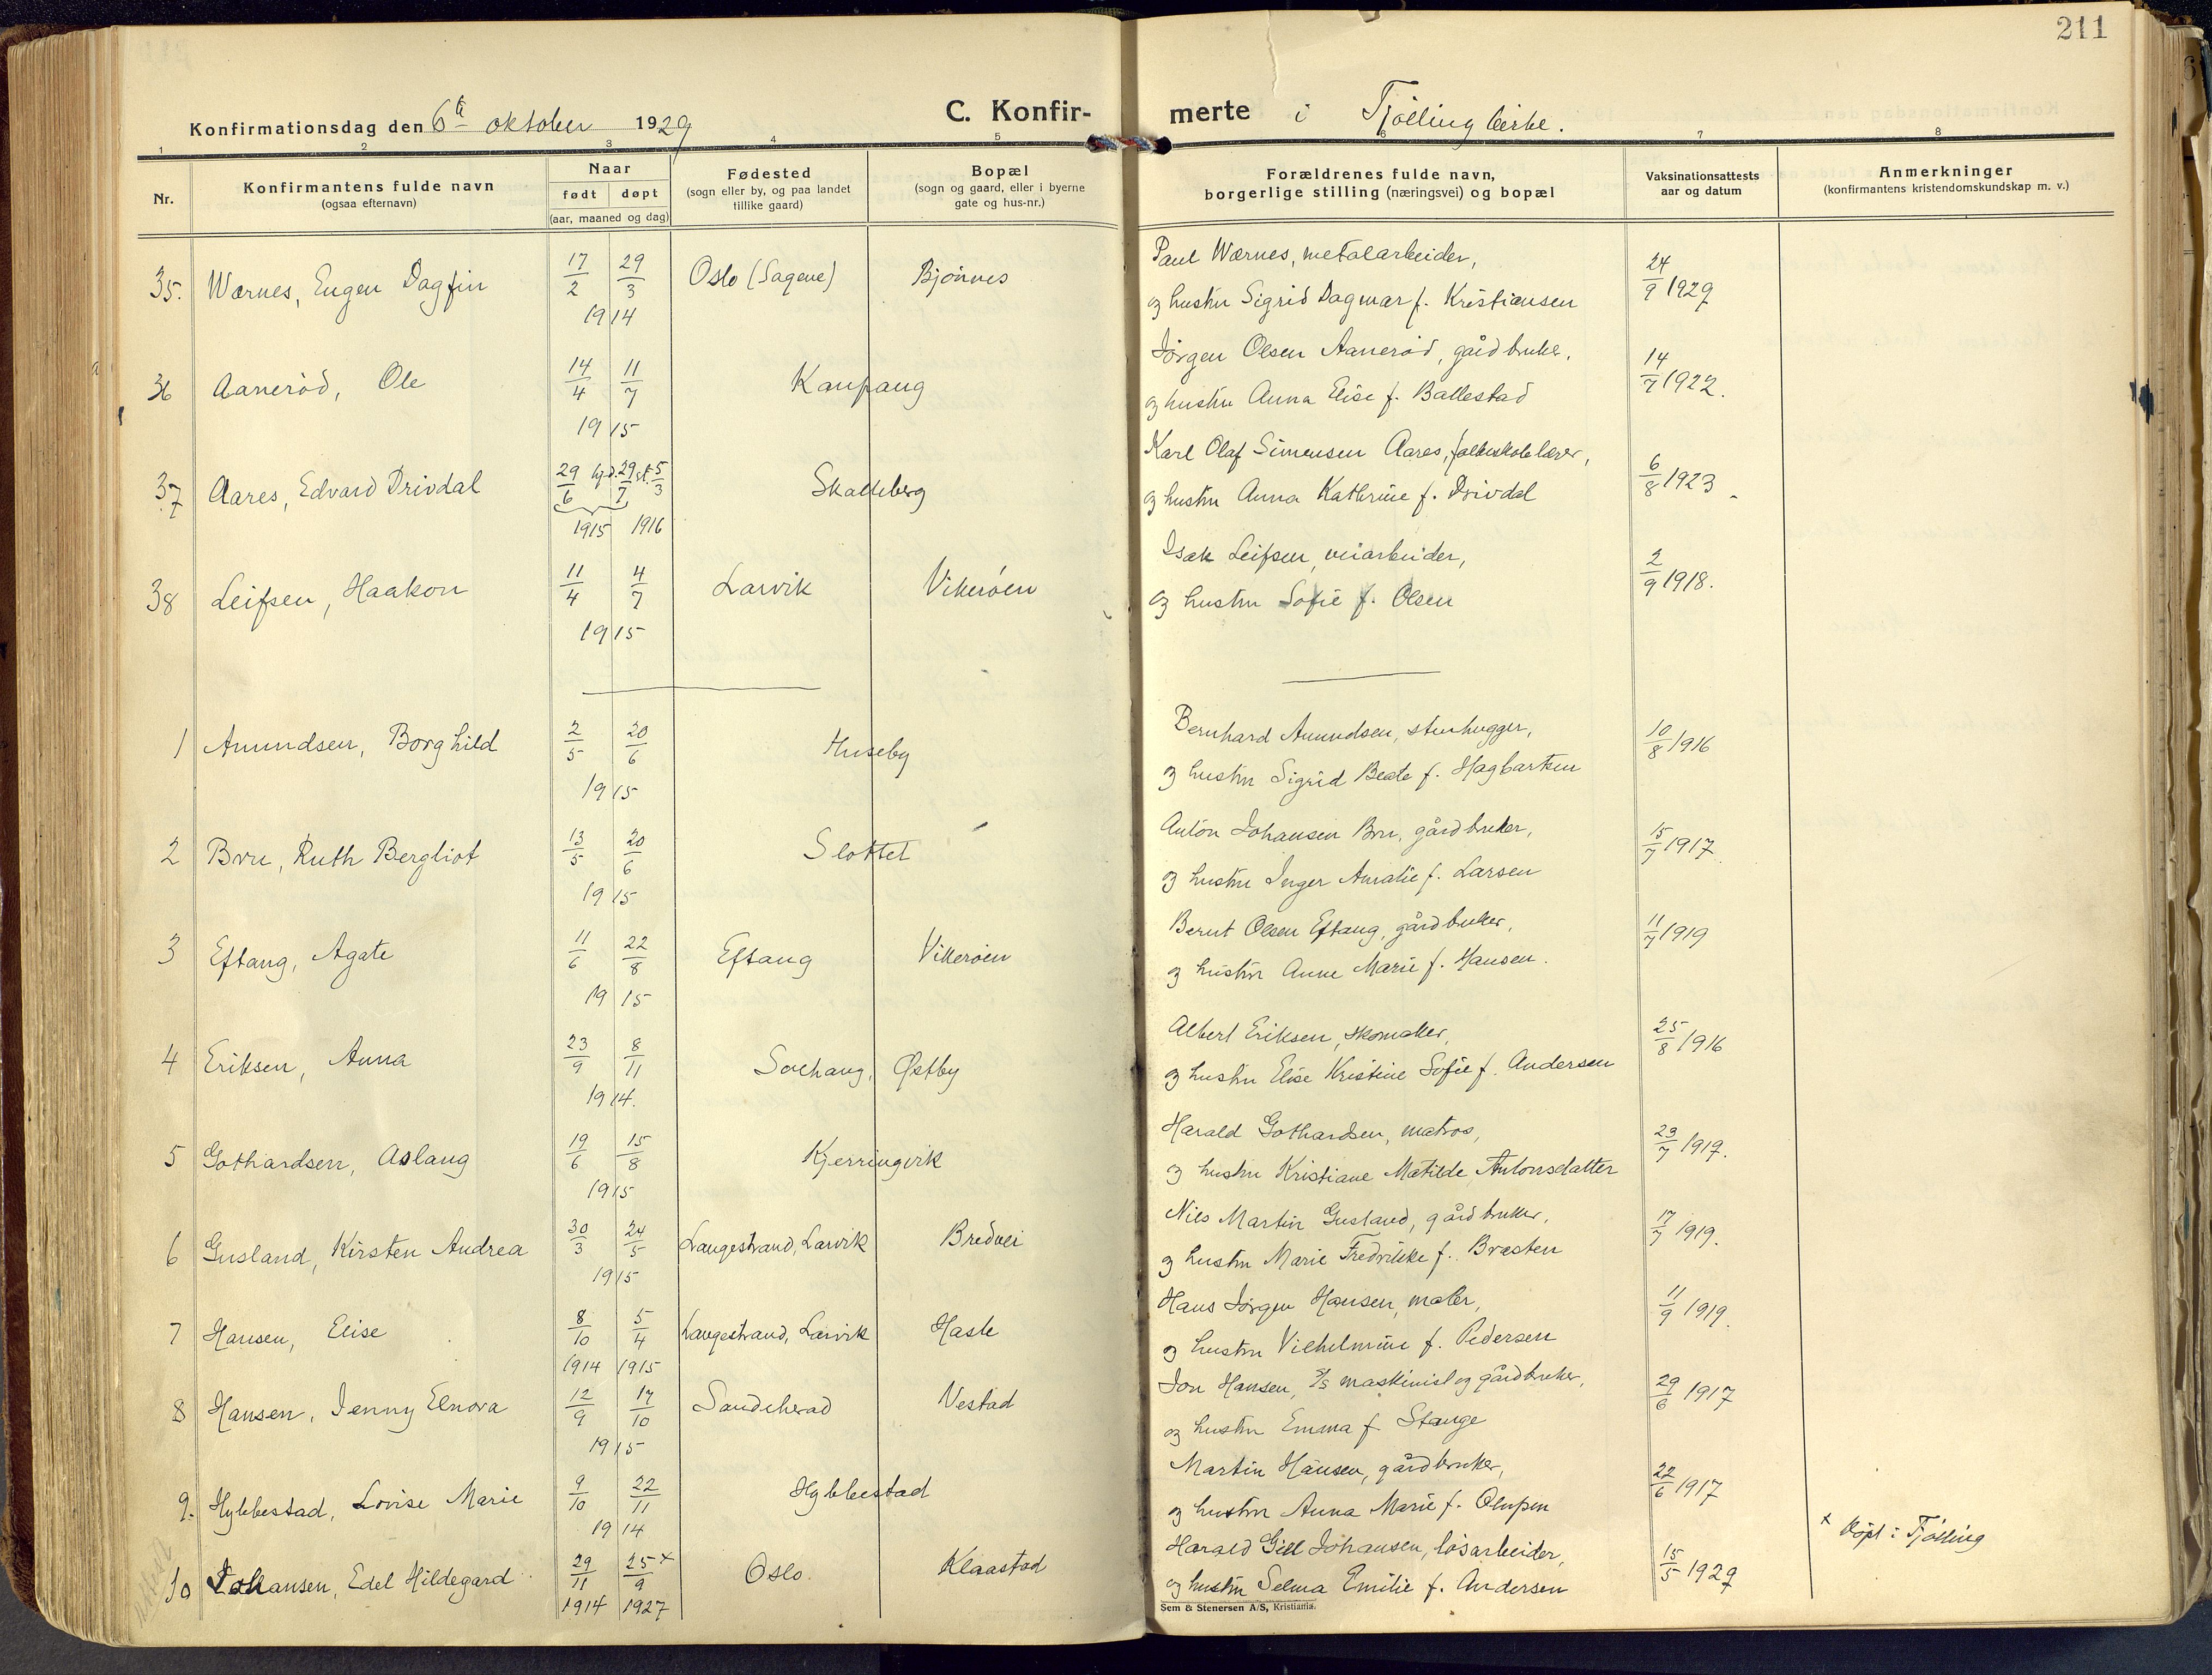 211
Konfirmationsdag den 6te oktober 1929
C. Konfir-
merte i Tjølling kirke.
1 2 3 4 5 6 7 8
Nr.
Konfirmantens fulde navn
(ogsaa efternavn)
Naar
født døpt
(aar, maaned og dag)
Fødested
(sogn eller by, og paa landet
tillike gaard)
Bopæl
(sogn og gaard, eller i byerne
gate og hus-nr.)
Forældrenes fulde navn,
borgerlige stilling (næringsvei) og bopæl
Vaksinationsattests
aar og datum
Anmerkninger
(konfirmantens kristendomskundskap m. v.)
35. Wærnes, Eugen Dagfin 17/2 29/3 1914 Oslo (Sagene) Bjønnes
Paul Wærnes, metalarbeider,
og hustru Sigrid Dagmar f. Kristiansen
24/9 1929
36 Aanerød, Ole 14/4 11/7 1915 Kaupang
Jørgen Olsen Aanerød, gårdbruker,
og hustru Anna Elise f. Ballestad
14/7 1922.
37 Aares, Edvard Drivdal 29/6 hjd. 29/7 st. 5/3 1915 1916 Skalleberg
Karl Olaf Simensen Aares, folkeskolelærer,
og hustru Anna Kathrine f. Drivdal
6/8 1923
38 Leifsen, Haakon 11/4 4/7 1915 Larvik Vikerøen
Isak Leifsen, veiarbeider,
og hustru Sofie f. Olsen
2/9 1918.
1 Amundsen, Borghild 2/5 20/6 1915 Huseby
Bernhard Amundsen, stenhugger,
og hustru Sigrid Beate f. Hagbartsen
10/8 1916
2 Bru, Ruth Bergliot 13/5 20/6 1915 Slottet
Anton Johansen Bru, gårdbruker,
og hustru Inger Amalie f. Larsen
15/7 1917.
3 Eftang, Agate 11/6 22/8 1915 Eftang Vikerøen
Bernt Olsen Eftang, gårdbruker,
og hustru Anne Marie f. Hansen.
11/7 1919
4 Eriksen, Anna 23/9 8/11 1914. Solhaug, Østby
Albert Eriksen, skomaker,
og hustru Elise Kristine Sofie f. Andersen
25/8 1916
5 Gothardsen, Aslaug 19/6 15/8 1915 Kjerringvik
Harald Gothardsen, matros,
og hustru Kristiane Matilde Antonsdatter
23/7 1917.
6 Gusland, Kirsten Andrea 30/3 24/5 1915 Langestrand, Larvik Bredvei
Nils Martin Gusland, gårdbruker,
og hustru Marie Fredrikke f. Bræsten
17/7 1919.
7 Hansen, Elise 8/10 5/4 1914 1915 Langestrand, Larvik Hasle
Hans Jørgen Hansen, maler,
og hustru Vilhelmine f. Pedersen
11/9 1919.
8 Hansen, Jenny Elnora 12/9 17/10 1915 Sandeherad Vestad
Jon Hansen, D/S maskinist og gårdbruker,
og hustru Emma f Stange
29/6 1917
9. Hybbestad, Lovise Marie 9/10 22/11 1914 Hybbestad
Martin Hansen, gårdbruker,
og hustru Anna Marie f. Olufsen
22/6 1917
10 Johansen, Edel Hildegard 29/11 25/9 x 1914 1927 Oslo. Klaastad
Harald Gill Johansen, løsarbeider,
og hustru Selma Emilie f. Andersen
15/5 1929
x døpt i Tjølling
Sem & Stenersen A/S, Kristiania.